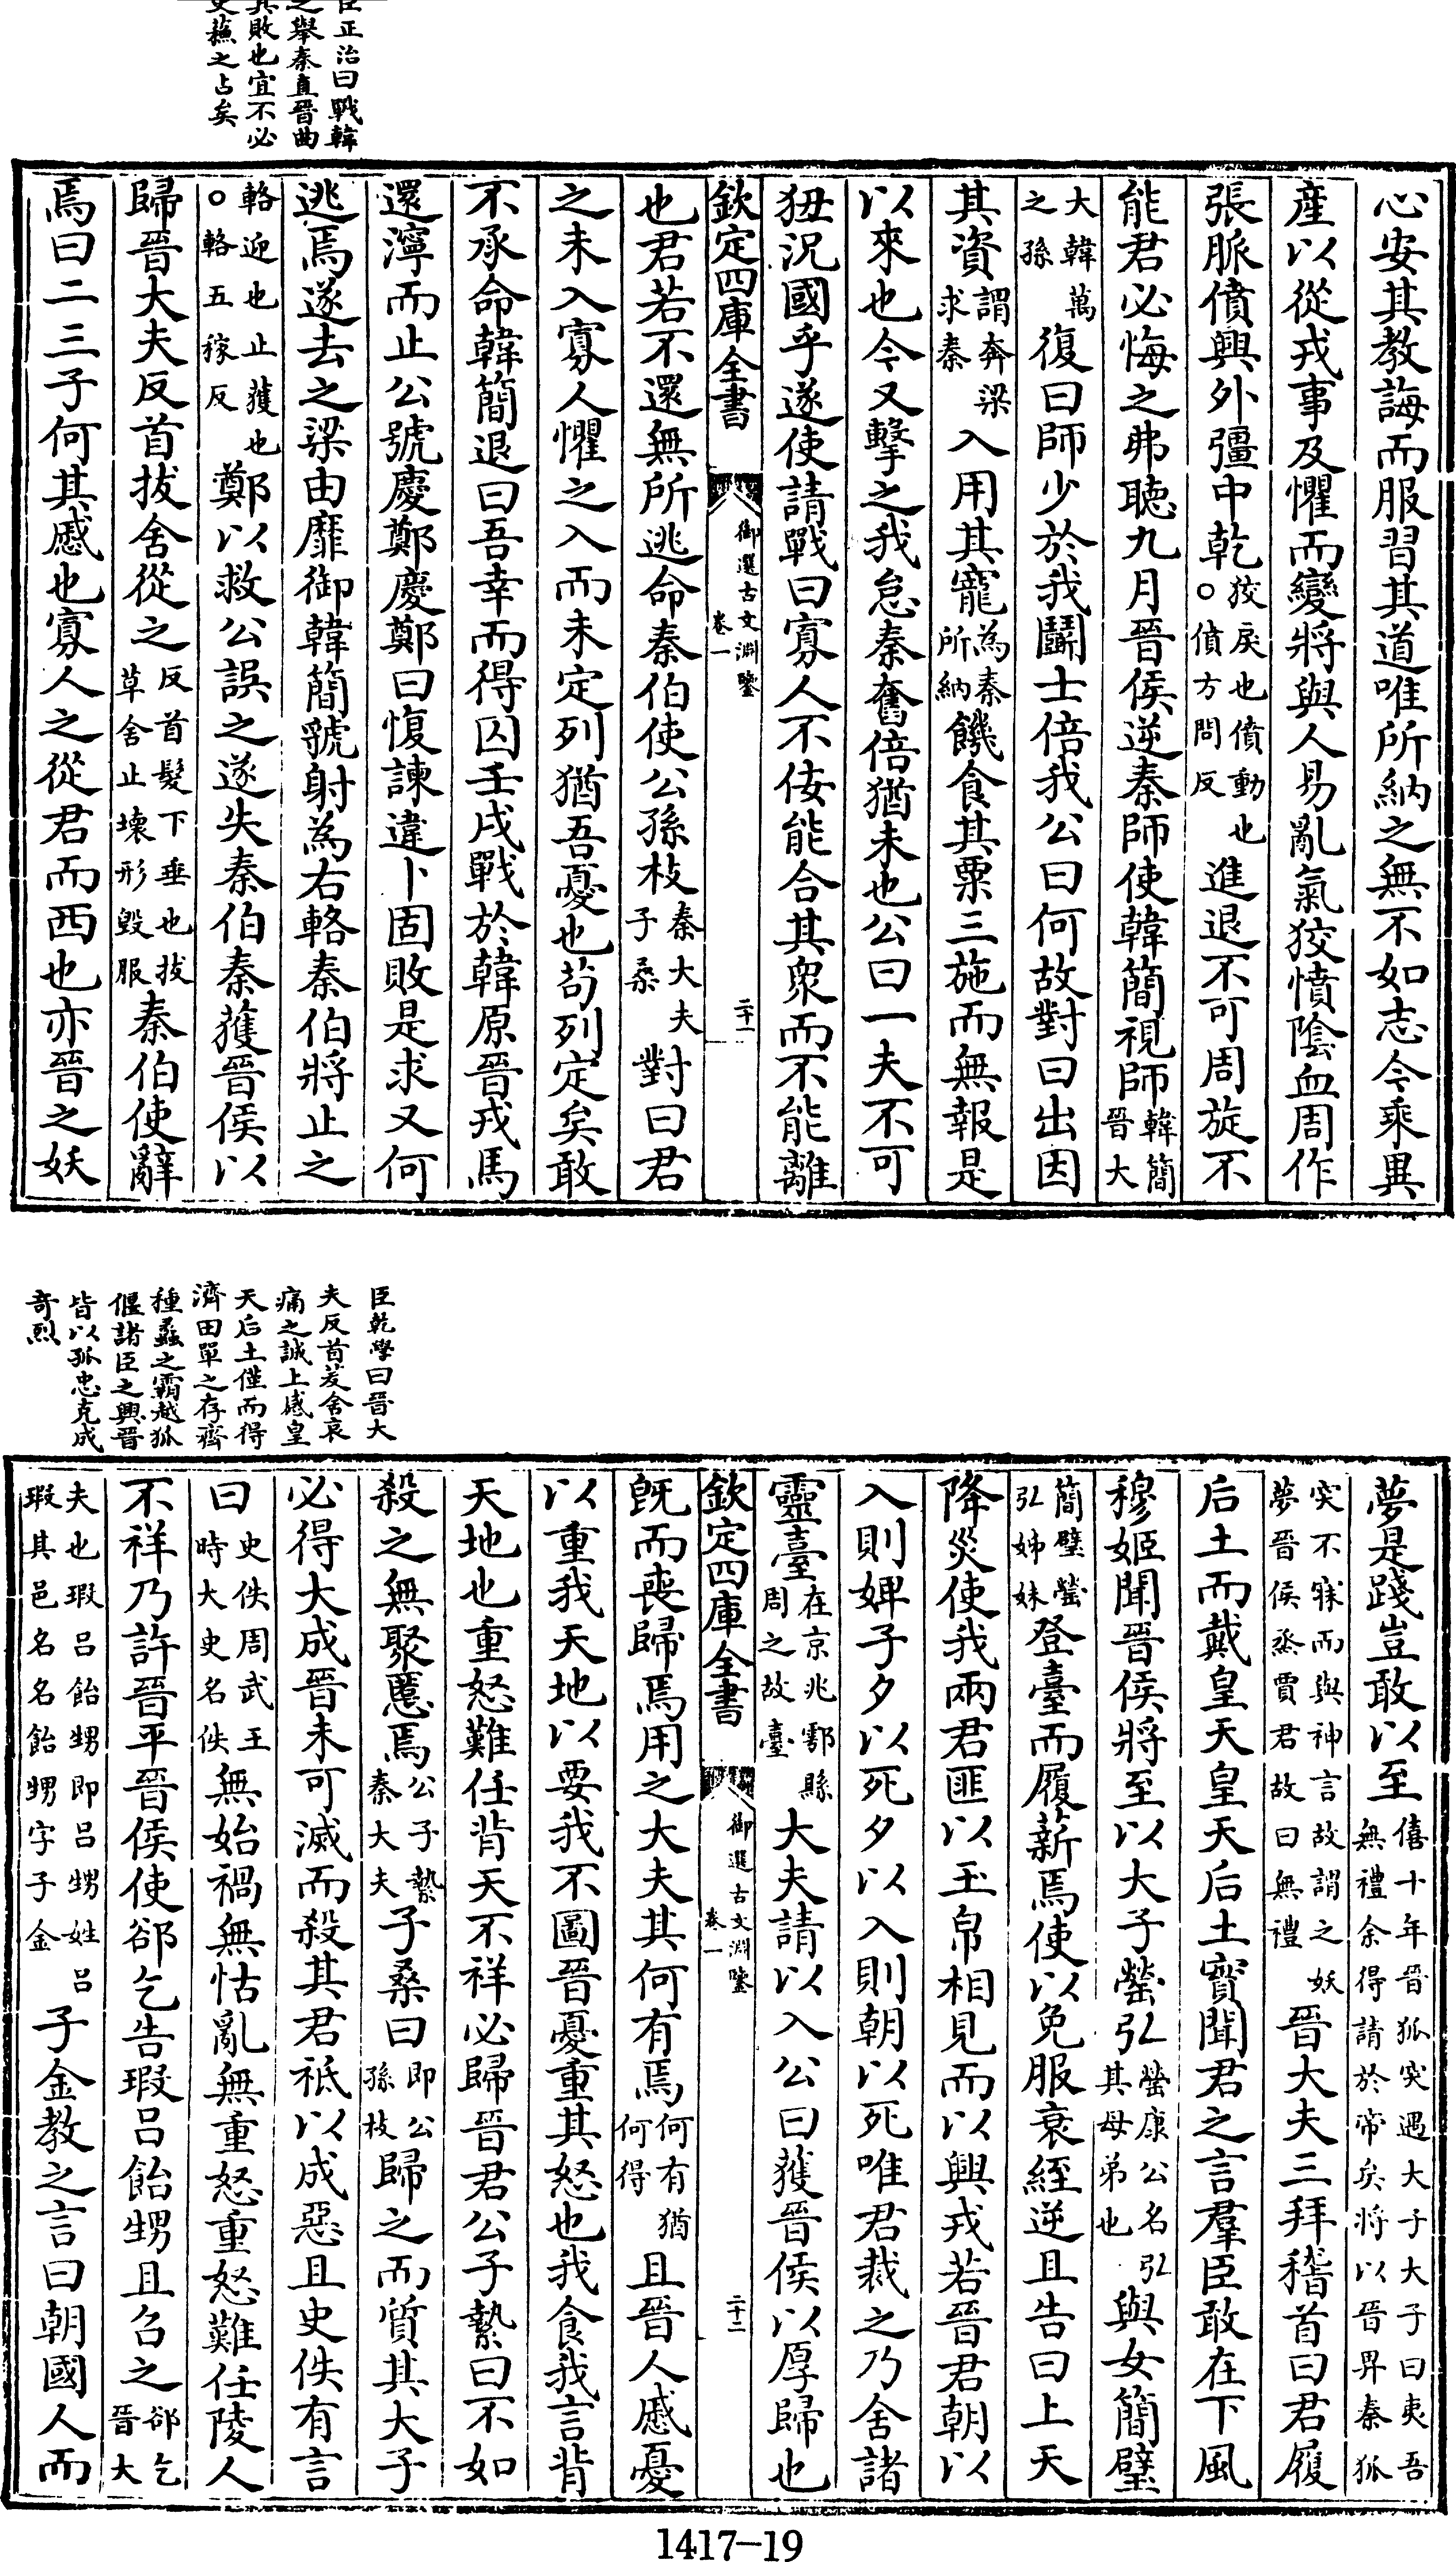 臣正治曰戰韓
之舉秦直晉曲
其敗也宜不必
史蘇之占矣
心安其教誨而服習其道唯所納之無不如志今乘異
産以從戎事及懼而變將與人易亂氣狡憤隂血周作
張脈僨興外彊中乾狡戾也僨動也○僨方問反進退不可周旋不
能君必悔之弗聽九月晉侯逆秦師使韓簡視師韓簡晉大
大韓萬之孫復曰師少於我鬬士倍我公曰何故對曰出因
其資謂奔梁求秦入用其寵為秦所納饑食其粟三施而無報是
以來也今又擊之我怠秦奮倍猶未也公曰一夫不可
狃況國乎遂使請戰曰寡人不佞能合其衆而不能離
欽定四庫全書 御選古文淵鑒 卷一 二十一
也君若不還無所逃命秦伯使公孫枝秦大夫子桑對曰君
之未入寡人懼之入而未定列猶吾憂也茍列定矣敢
不承命韓簡退曰吾幸而得囚壬戌戰於韓原晉戎馬
還濘而止公號慶鄭慶鄭曰愎諫違卜固敗是求又何
逃焉遂去之梁由靡御韓簡虢射為右輅秦伯將止之
輅迎也止獲也○輅五稼反鄭以救公誤之遂失秦伯秦獲晉侯以
歸晉大夫反首拔舍從之反首髮下垂也拔草舍止壞形毀服秦伯使辭
焉曰二三子何其慼也寡人之從君而西也亦晉之妖
臣乾學曰晉大
夫反首茇舍哀
痛之誠上感皇
天后土僅而得
濟田單之存齊
種蠡之霸越狐
偃諸臣之興晉
皆以孤忠克成
奇烈
夢是踐豈敢以至僖十年晉狐突遇大子大子曰夷吾無禮余得請於帝矣將以晉畀秦狐
突不寐而與神言故謂之妖夢晉侯烝賈君故曰無禮晉大夫三拜稽首曰君履
后土而戴皇天皇天后土實聞君之言羣臣敢在下風
穆姬聞晉侯將至以大子罃弘罃康公名弘其母弟也與女簡璧
簡璧罃弘姊妹登臺而履薪焉使以免服衰絰逆且告曰上天
降災使我兩君匪以玉帛相見而以興戎若晉君朝以
入則婢子夕以死夕以入則朝以死唯君裁之乃舍諸
靈臺在京兆鄠縣周之故臺大夫請以入公曰獲晉侯以厚歸也
欽定四庫全書 御選古文淵鑒 卷一 二十二
既而喪歸焉用之大夫其何有焉何有猶何得且晉人慼憂
以重我天地以要我不圖晉憂重其怒也我食我言背
天地也重怒難任背天不祥必歸晉君公子縶曰不如
殺之無聚慝焉公子縶秦大夫子桑曰即公孫枝歸之而質其大子
必得大成晉未可滅而殺其君祗以成惡且史佚有言
曰史佚周武王時大史名佚無始禍無怙亂無重怒重怒難任陵人
不祥乃許晉平晉侯使郤乞告瑕呂飴甥且召之郤乞晉大
夫也瑕呂飴甥即呂甥姓呂瑕其邑名名飴甥字子金子金教之言曰朝國人而
1417-19